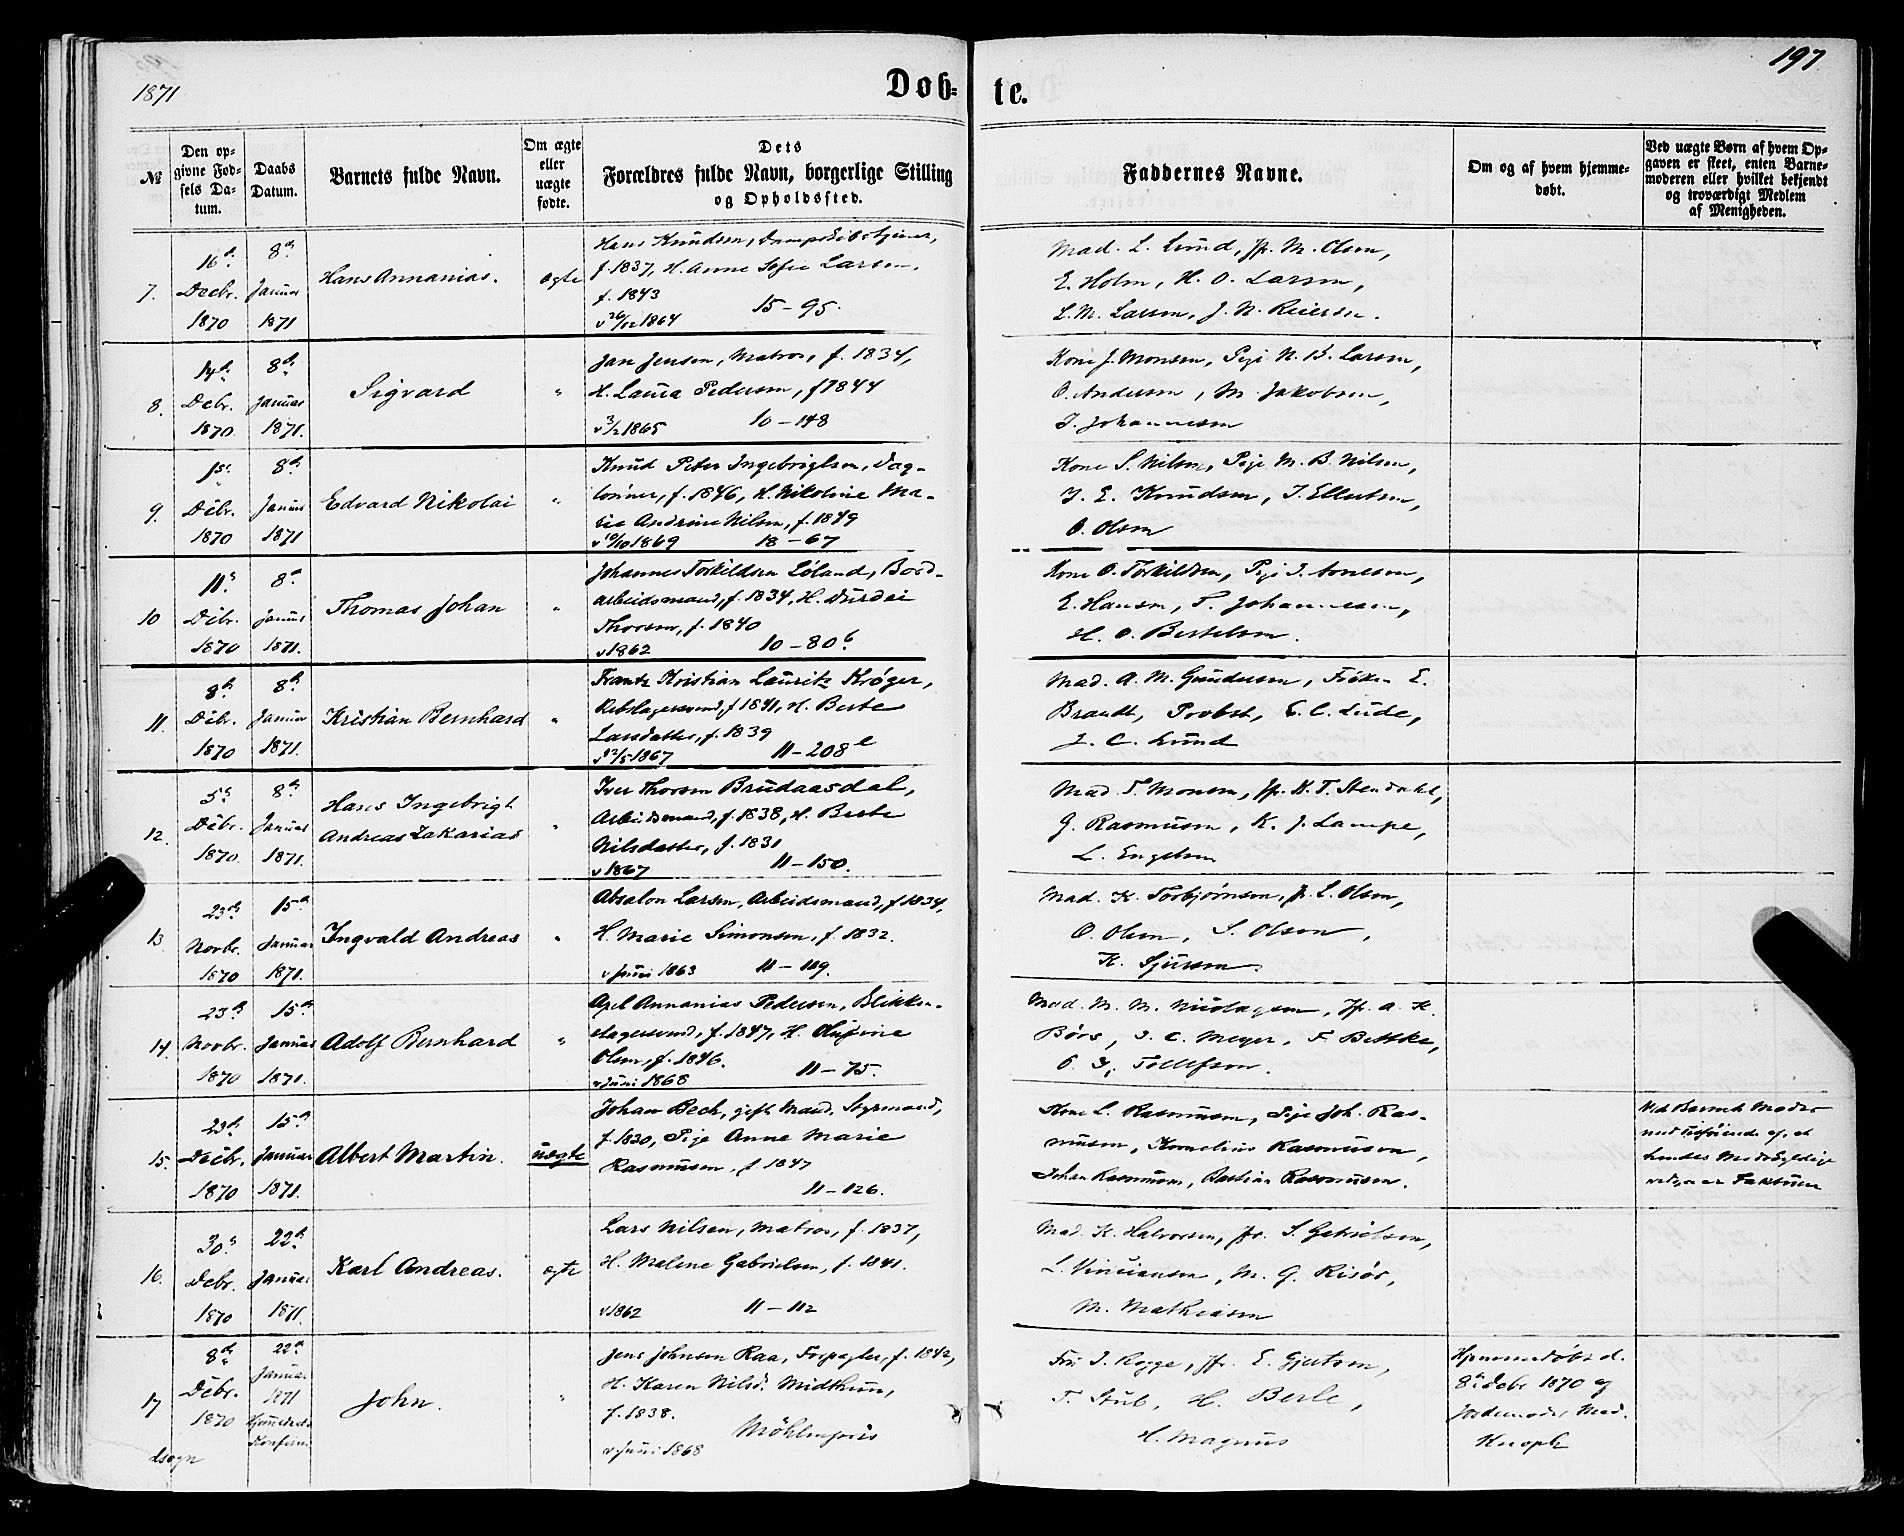 1871
Døb-
te.
197
№
Den op-
givne Fød-
sels Da-
tum.
Daabs
Datum.
Barnets fulde Navn.
Om ægte
eller
uægte
fødte.
Dets
Forældres fulde Navn, borgerlige Stilling
og Opholdssted.
Faddernes Navne.
Om og af hvem hjemme-
døbt.
Ved uægte Børn af hvem Op-
gaven er skeet, enten Barne-
moderen eller hvilket bekjendt
og troværdigt Medlem
af Menigheden.
7.
16d
Decbr.
1870
8d
Januar
1871
Hans Annanias.
ægte
Hans Knudsen,
f. 1837, H. Anne Sofie Larsen,
f. 1843
v 26/12 1864 15-95.
Mad. L. Lund, Jfr. M. Olsen,
E. Holm, H. O. Larsen,
L. M. Larsen, J. N. Reiersen.
8.
14d
Debr.
1870
8d
Januar
1871.
Sigvard
"
Jan Jensen, Matros, f. 1834,
H. Laura Pedersen, f 1844
v 3/2 1865 10-148
Kone J. Monsen, Pige N. B. Larsen,
O. Andersen, M. Jakobsen,
J. Johannesen
9.
15.
Debr.
1870
8d
Januar
1871
Edvard Nikolai
"
Knud Peter Ingebrigtsen, Dag-
lønner, f. 1846, H. Nikoline Ma-
rie Andrine Nilsen, f. 1849
v 10/10 1869 18-67
Kone S. Nilsen, Pige M. B. Nilsen,
J. E. Knudsen, J. Ellertsen,
O. Olsen
10
11.
Debr.
1870
8d
Januar
1871.
Thomas Johan
"
Johannes Torkildsen Loland, Bord-
arbeidsmand, f. 1834, H. Durdei
Thorsen, f. 1840
v 1862 10-80b
Kone O. Torkildsen, Pige J. Arnesen,
E. Hansen, T. Johannesen,
H. O. Bertelsen.
11.
8d
Debr.
1870
8d
Januar
1871.
Kristian Bernhard
"
Frantz Kristian Lauritz Krøger,
Rebslagersvend, f 1841, H. Berte
Larsdatter, f. 1839
v 12/5 1867 11-208e
Mad. A. M. Gundersen, Frøken E.
Brandt, Probst, C. C. Lude,
J. C. Lund
12.
5d
Debr.
1870.
8d
Januar
1871.
Hans Ingebrigt
Andreas Zakarias
"
Iver Thorsen Brudaasdal,
Arbeidsmand, f. 1838, H. Berte
Nilsdatter, f. 1831
v 1867 11-150.
Mad. T. Monsen, Jfr. N. T. Stendahl,
G. Rasmusen, K. J. Lampe,
L. Engelsen
13
23d
Novbr.
1870
15d
Januar
1871.
Ingvald Andreas
"
Absalon Larsen, Arbeidsmand, f 1834,
H. Marie Simonsen, f. 1832.
v Juni 1863 11-119.
Mad. K. Torbjørnsen, Jfr. L. Olsen,
O. Olsen, S. Olson,
K. Sjursen.
14.
23d
Novbr.
1870
15d
Januar
1871.
Adolf Bernhard
"
Axel Annanias Pedersen, Blikken-
slagersvend, f. 1847, H. Olufine
Olsen, f. 1846.
v Juni 1868 11-75.
Mad. M. M. Nicolaysen, Jfr. A. K.
Børs, J. C. Meyer, F. Bettke,
O. J. Tollefson.
15.
23d
Decbr.
1870
15d
Januar
1871.
Albert Martin.
uægte
Johan Bech, gift Mand, Styrmand,
f. 1830, Pige Anne Marie
Rasmusen, f 1847
11-126.
Kone L. Rasmusen, Pige Joh. Ras-
musen, Kornelius Rasmusen,
Johan Rasmusen, Bastian Rasmusen.
Ved Barnets Moder
med Tilføiende af, at
hendes
16.
30d
Debr.
1870
22d
Januar
1871.
Karl Andreas.
ægte
Lars Nilsen, Matros, f. 1837,
H. Malene Gabrielsen, f. 1841.
v 1862 11-112
Mad. K. Halvorsen, Jfr. S. Gabrielsen,
L. Vinciansen, M. G. Risør,
M. Mathiasen
17
8d
Debr.
1870
22d
Januar
1871
John.
"
Jens Johnsen Raa, Forpagter, f. 1842,
H. Karen Nilsd. Midthun,
f. 1838.
v Juni 1868 Möhlenpris
Fru J. Rogge, Jfr. E. Gjertsen,
T. Stub, H. Berle,
H. Magnus
Hjemmedøbt d.
8d Debr 1870 af
Jordemoder Mad.
Knoph
dsogn